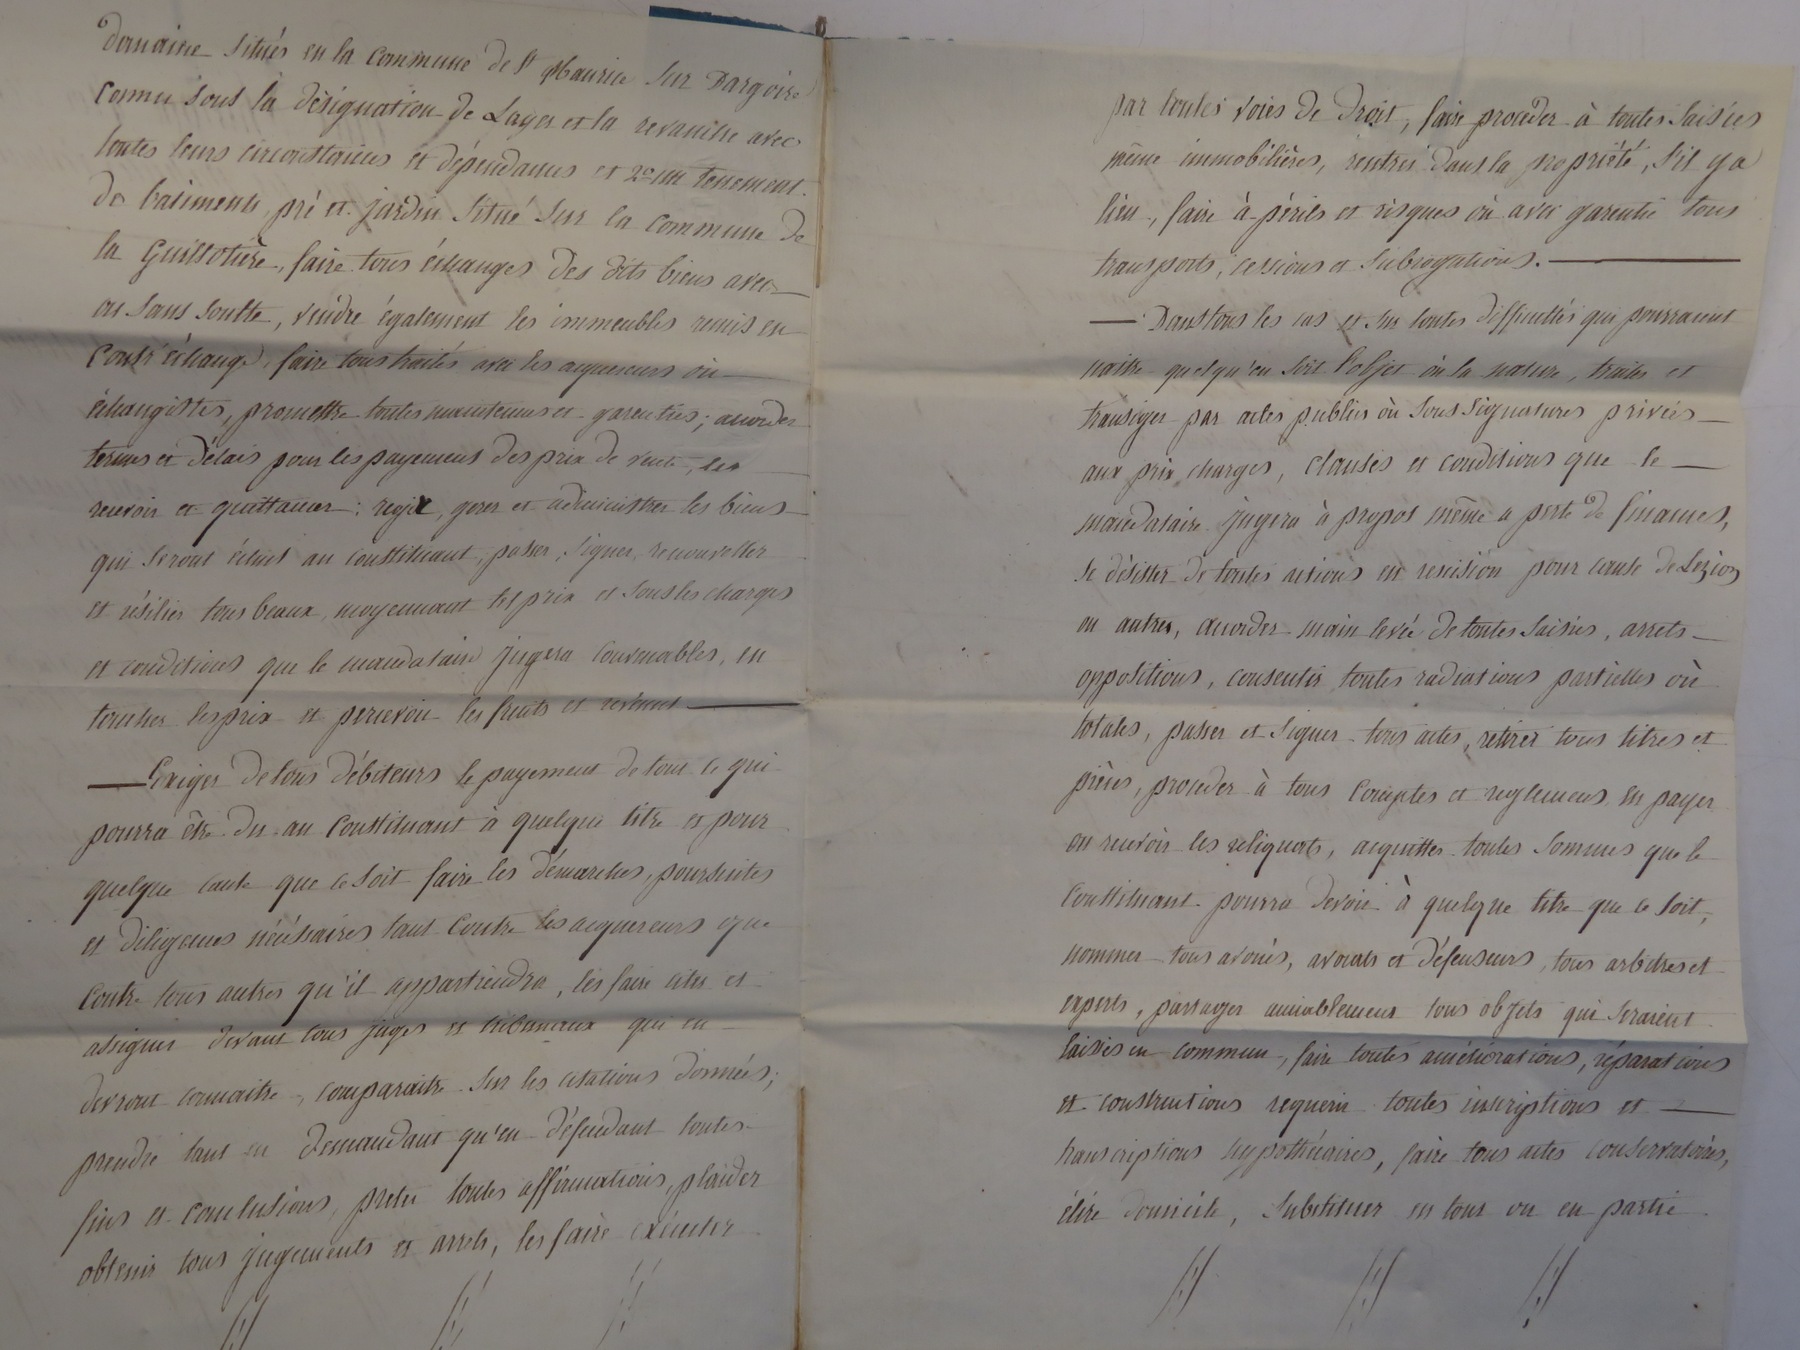 Domaine situés en la Commune de St Maurice sur Dargoire
connu sous la désignation de Layer et la revanche avec
toutes leurs circonstances et dépendances et 2° un tenement
de batiments, pré et jardin situé sur la commune de
la Guillotière, faire tous échanges des dits biens avec
ou sans soulte, vendre également les immeubles remis en
contr'échange, faire tous traités avec les acquereurs où
échangistes, promettre toutes maintenues et garenties; accorder
termes et délais pour les payemens des prix de vente, les
recevoir et quittancer: regir, gerer et administrer les biens
qui seront échus au constituant, passer, signer, renouveller
et résilier tous beaux, moyennant tel prix et sous les charges
et conditions que le mandataire jugera convenables, en
toucher les prix et percevoir les fruits et revenus
Exiger de tous débiteurs le payement de tout ce qui
pourra être du au Constituant à quelque titre et pour
quelque cause que ce soit faire les démarches, poursuites
et diligences nécéssaires tant contre les acquereurs que
contre tous autres qu'il appartiendra, les faire citer et
assigner devant tous juges et tribunaux qui en
devront connaitre, comparaitre sur les citations données;
prendre tant en demandant qu'en défendant toutes
fins et conclusions, preter toutes affirmations, plaider
obtenir tous jugements et arrets, les faire exécuter
par toutes voies de droit, faire proceder à toutes saisies
même immobilières, rentrer dans la propriété, s'il y a
lieu, faire à périls et risques où avec garentie tous
transports, cessions et subrogations.
Dans tous les cas et sur toutes difficultés qui pourraient
naitre quelqu'en soit l'objet où la nature, traiter et
transiger par actes publics où sous signatures privées
aux prix, charges, clauses et conditions que le
mandataire jugera à propos même a perte de finances,
se désister de toutes actions en rescision pour cause de Lezion
ou autres, accorder main levée de toutes saisies, arrets
oppositions, consentir toutes radiations partielles où
totales, passer et signer tous actes, retirer tous titres et
pièces, proceder à tous comptes et reglemens en payer
ou recevoir les reliquats, acquitter toutes sommes que le
Constituant pourra devoir à quelque titre que ce soit,
nommer tous avoués, avocats et défenseurs, tous arbitres et
experts, partager amiablement tous objets qui seraient
laissés en commun, faire toutes améliorations, réparations
et constructions requerir toutes inscriptions et
transcriptions hypothécaires, faire tous actes conservatoires,
élire domicile, substituer en tout ou en partie